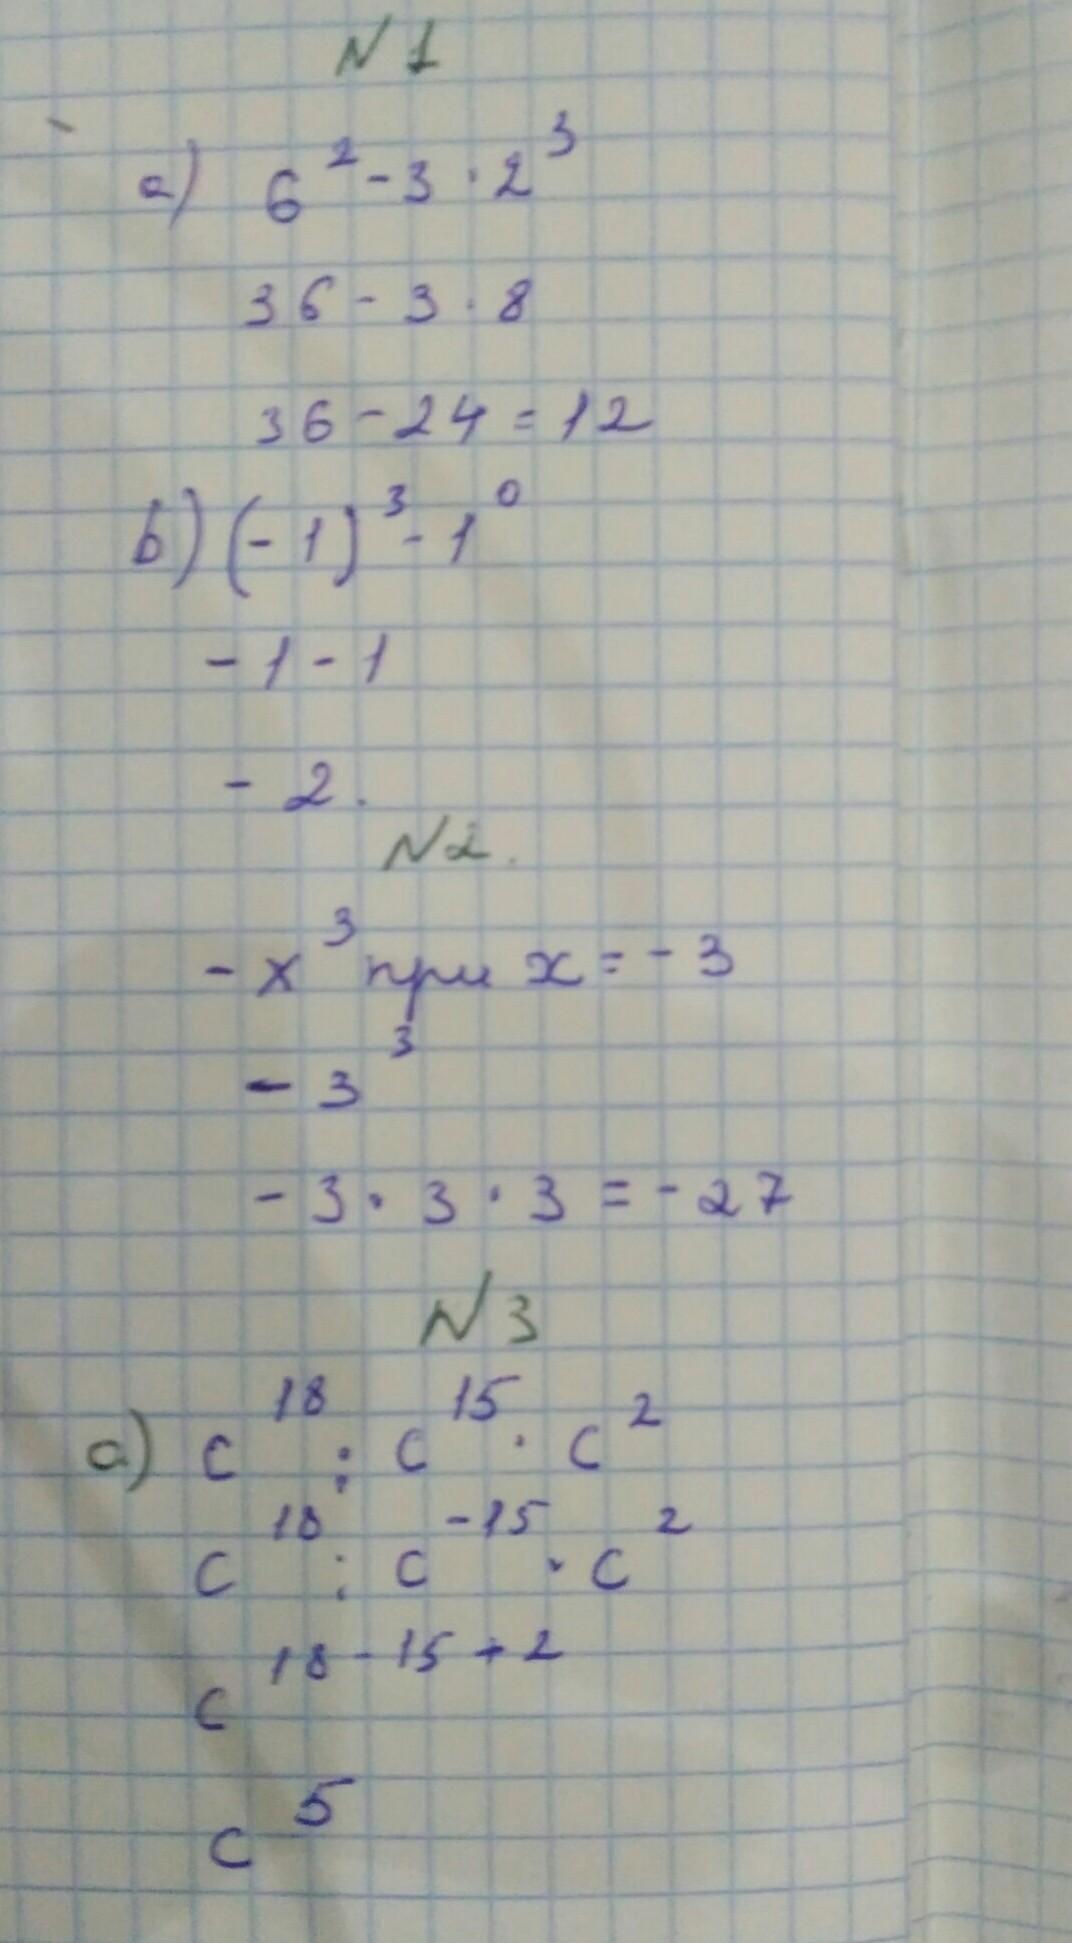 N 1
а) 6² - 3 · 2³
36 - 3 · 8
36 - 24 = 12
b) (-1)³ - 1⁰
- 1 - 1
- 2.
N 2.
- x³ при x = - 3
- 3³
- 3 · 3 · 3 = - 27
N 3
а) c¹⁸ : c¹⁵ · c²
c¹⁸ : c⁻¹⁵ · c²
c¹⁸⁻¹⁵⁺²
c⁵